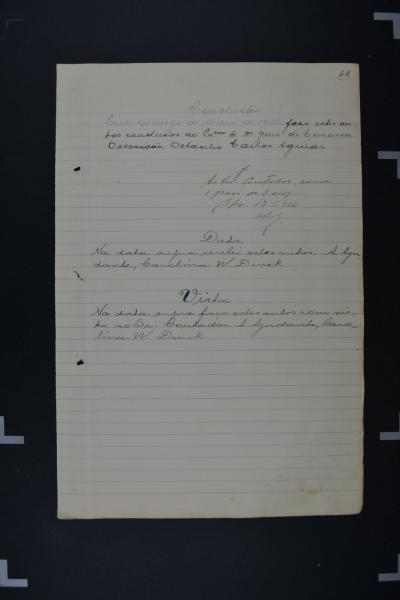 68
Conclusão
Em quinze de Maio de 1926, faço estes au-
tos conclusos ao Exmo Sr. Dr. Juiz da Comarca
Octacilio Carlos Aguiar
Ao Sr. Contador, com
o prazo de
Data
Na data supra recebi estes autos. A Aju-
dante, Carolina W. Druck
Vista
Na data supra faço estes autos com vis-
ta ao Sr. Contador. A Ajudante, Caro-
lina W. Druck